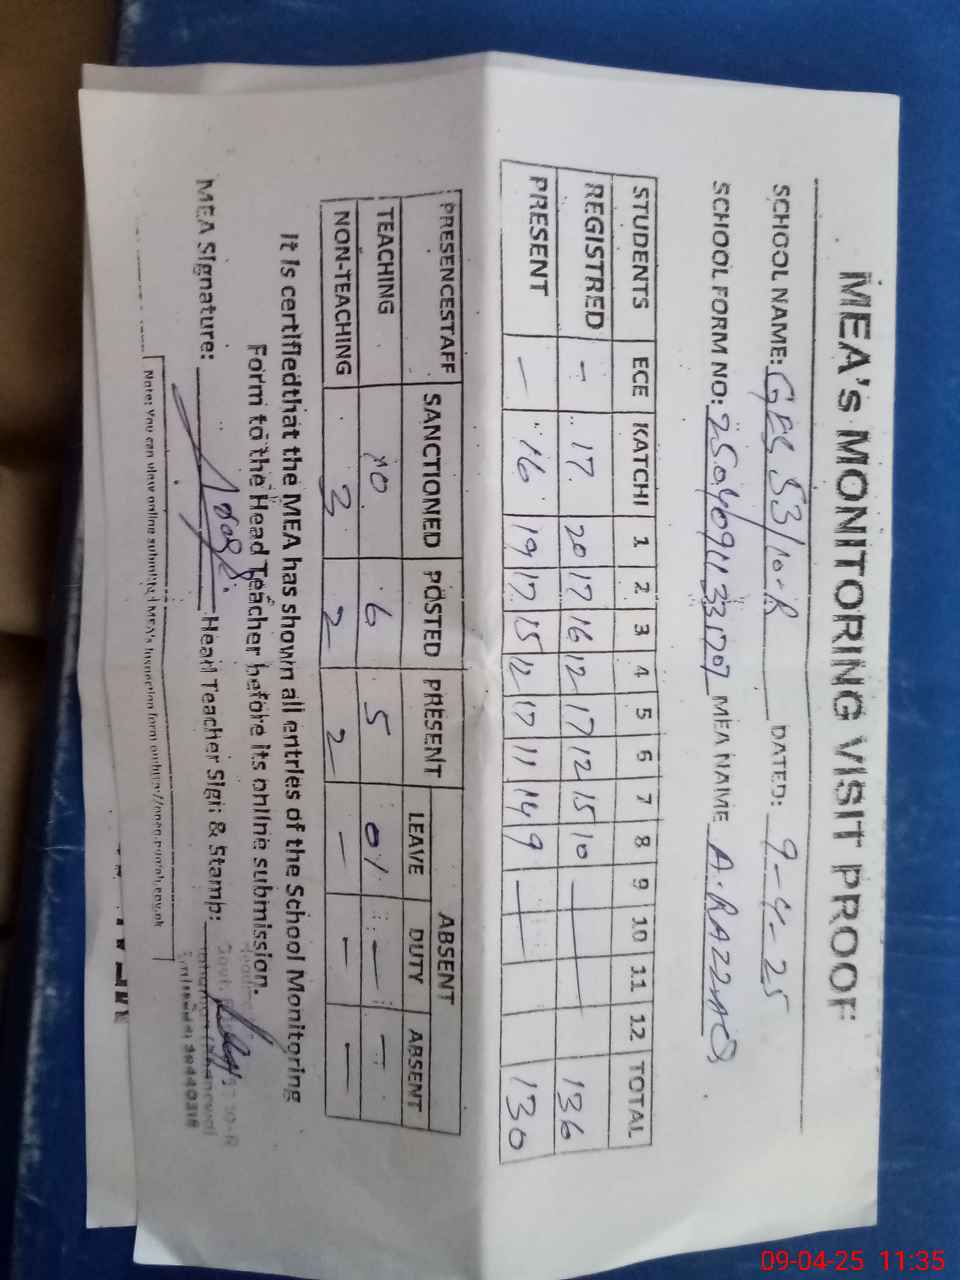 MEA's MONITORING VISIT PROOF
SCHOOL NAME: GES 53/10-R DATED: 9-4-25
SCHOOL FORM NO: MEA NAME A.RAZZAQ
STUDENTS ECE KATCHI 1 2 3 4 5 6 7 8 9 10 11 12 TOTAL
REGISTRED - 17 20 17 16 12 17 12 15 10 — 136
PRESENT — 16 19 17 15 12 17 11 14 9 — 130
PRESENCESTAFF SANCTIONED POSTED PRESENT ABSENT
LEAVE DUTY ABSENT
TEACHING 10 6 5 01 — —
NON-TEACHING 3 2 2 — — —
It is certifiedthat the MEA has shown all entries of the School Monitoring
Form to the Head Teacher before its online submission.
MEA Signature: Head Teacher Sign & Stamp:
Govt. -R
Note: You can view online submitted MEA's Inspection form
09-04-25 11:35